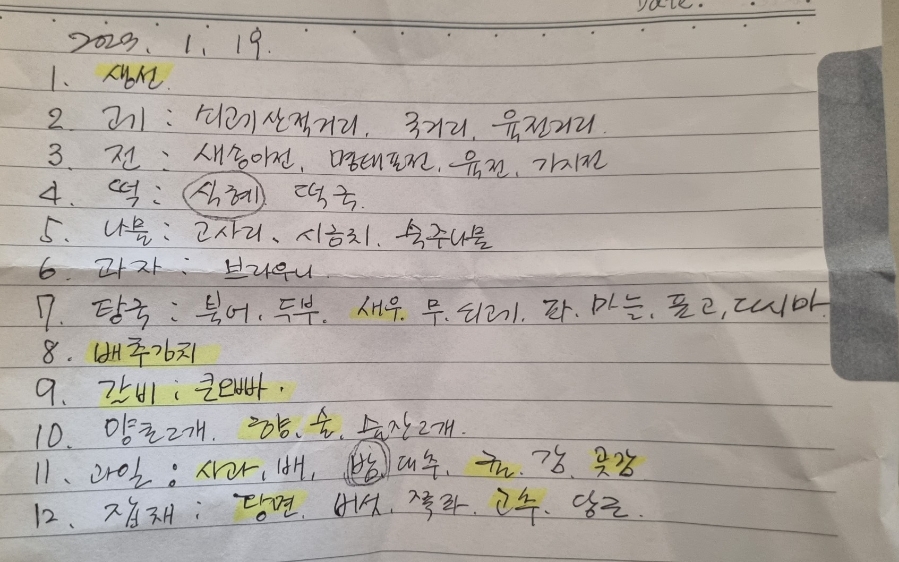 Date.
2023. 1. 19.
1. 생선
2. 고기 : 쇠고기산적거리, 국거리, 육전거리
3. 전 : 새송이전, 명태포전, 육전, 가지전
4. 떡 : 식혜 떡국
5. 나물 : 고사리, 시금치, 숙주나물
6. 과자 : 브라우니
7. 탕국 : 북어, 두부, 새우, 무, 쇠고기, 파, 마늘, 표고, 다시마
8. 배추김치
9. 갈비 : 큰오빠
10. 양초2개, 향, 술, 술잔2개.
11. 과일 : 사과, 배, 밤, 대추, 귤, 감, 곶감
12. 잡채 : 당면, 버섯, 고추, 당근